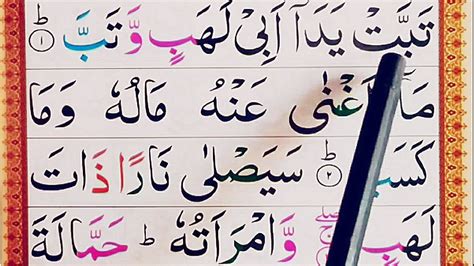 تَبَّتْ يَدَآ اَبِىْ لَهَبٍ وَّتَبَّ ؕ‏ ﴿۱﴾
مَاۤ اَغْنٰى عَنْهُ مَالُهٗ وَمَا
كَسَبَ ؕ‏ ﴿۲﴾ سَيَصْلٰى نَارًا ذَاتَ
لَهَبٍ ۖۚ وَّامْرَاَتُهٗ ؕ حَمَّالَةَ